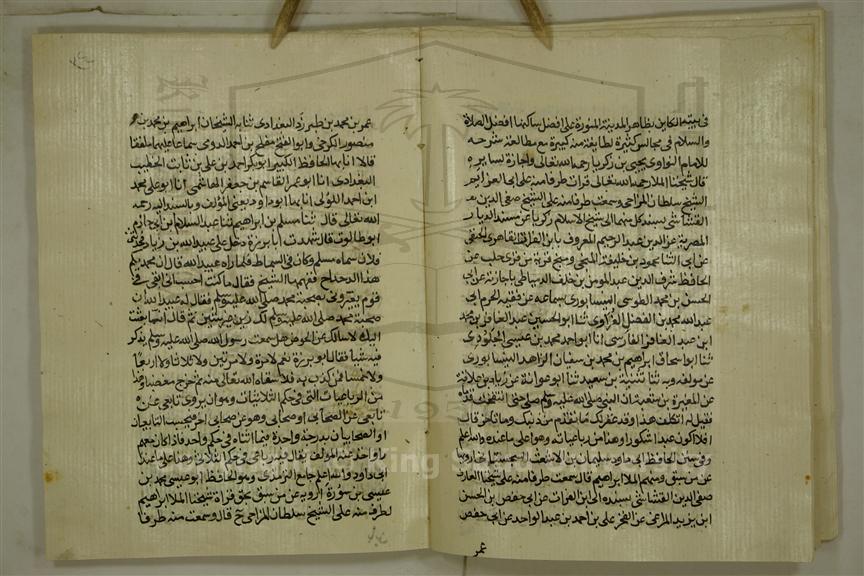 في بيته الكاين بظاهر المدينة المنورة على افضل ساكنها افضل الصلاة
والسلام في مجالس كثيرة لطايفة منه كبيرة مع مطالعة شرحه
للامام النواوي يحيى بن زكريا رحمه الله تعالى واجازة لسايره
قال شيخنا الملا رحمه الله تعالى قرات طرفا منه على
الشيخ سلطان المزاحي وسمعت طرفا منه على الشيخ صفي الدين
القشاشي بسند كل منهما الى شيخ الاسلام زكريا عن مسند الديار
المصرية عز الدين عبد الرحيم المعروف بابن الفرات القاهري الحنفي
عن ابي الثنا محمود بن خليفة المنبجي ومنبج قرية من قرى حلب عن
الحافظ شرف الدين عبد المومن بن خلف الدمياطي باجازته عن ابي
الحسن بن محمد الطوسي النيسابوري بسماعه عن فقيه الحرم ابي
عبد الله محمد بن الفضل الفراوي ثنا ابو الحسين عبد الغافر بن محمد
ابن عبد الغافر الفارسي انا ابو احمد محمد بن عيسى الجلودي
ثنا ابو اسحاق ابراهيم بن محمد بن سفيان الزاهد النيسابوري
عن مولفه وبه ثنا قتيبة بن سعيد ثنا ابو عوانة عن زياد بن علاقة
عن المغيرة بن شعبة ان النبي صلى الله عليه وسلم صلى حتى انتفخت قدماه
فقيل له اتكلف هذا وقد غفر لك ما تقدم من ذنبك وما تاخر قال
افلا اكون عبدا شكورا وهذا من رباعياته وهو اعلى ما عنده والله اعلم
وفي سنن الحافظ ابي داود سليمان بن الاشعث السجستاني
عن من سبق ومنهم الملا ابراهيم قال سمعت طرفا منه على شيخنا العارف
صفي الدين القشاشي بسنده الى ابن الفرات عن ابي حفص بن الحسن
ابن يزيد المراغي عن الفخر علي بن احمد بن عبد الواحد عن ابي حفص
عمر
عمر بن محمد بن طبرزد البغدادي ثنا به الشيخان ابراهيم بن محمد بن
منصور الكرخي وابو الفتح مفلح بن احمد الدومي سماعا عليهما ملفقا
قالا انا بها الحافظ الكبير ابو بكر احمد بن علي بن ثابت الخطيب
البغدادي انا ابو عمر القاسم بن جعفر الهاشمي انا ابو علي محمد
ابن احمد اللؤلؤي انا بها ابو داود يعني المؤلف وبالسند اليه رحمه
الله تعالى قال ثنا مسلم بن ابراهيم ثنا عبد السلام بن ابي حازم
ابو طالوت قال شهدت ابا برزة دخل على عبيد الله بن زياد فحدثني
فلان سماه مسلم وكان في السماط فلما راه عبيد الله قال ان محمديكم
هذا الدحداح ففهمها الشيخ فقال ما كنت احسب اني ابقى في
قوم يعيروني بصحبة محمد صلى الله عليه وسلم فقال له عبيد الله ان
صحبة محمد صلى الله عليه وسلم لك زين غير شين ثم قال انما بعثت
اليك لاسالك عن الحوض هل سمعت رسول الله صلى الله عليه وسلم يذكر
فيه شيا فقال ابو برزة نعم لا مرة ولا مرتين ولا ثلاثا ولا اربعا
ولا خمسا فمن كذب به فلا سقاه الله تعالى منه ثم خرج مغضبا وهذا
من الرباعيات التي في حكم الثلاثيات وهو ان يروي تابعي عن
تابعي عن الصحابي او صحابي وهو عن صحابي اخر فيحسب التابعيان
او الصحابيان بدرجة واحدة فهما اثنان في حكم واحد فاذا كان معهم
راو واحد عند المولف يقال فيه رباعي في حكم الثلاثي وهذا اعلى ما عند
ابي داود والله اعلم جامع الترمذي وهو الحافظ ابو عيسى محمد بن
عيسى بن سورة ارويه عن من سبق بحق قراة شيخنا الملا ابراهيم
لطرف منه على الشيخ سلطان المزاحي ح قال وسمعت منه طرفا